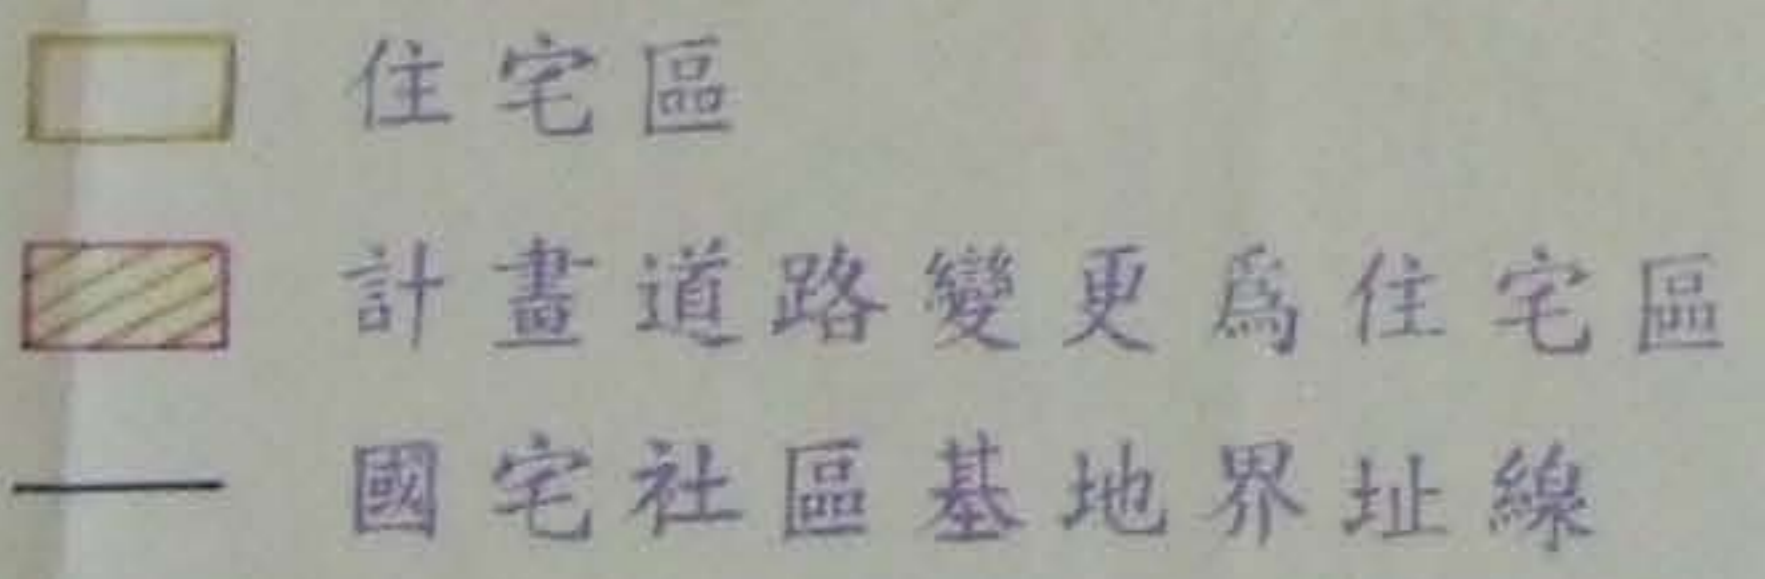 住宅區
計畫道路變更爲住宅區
國宅社區基地界址線